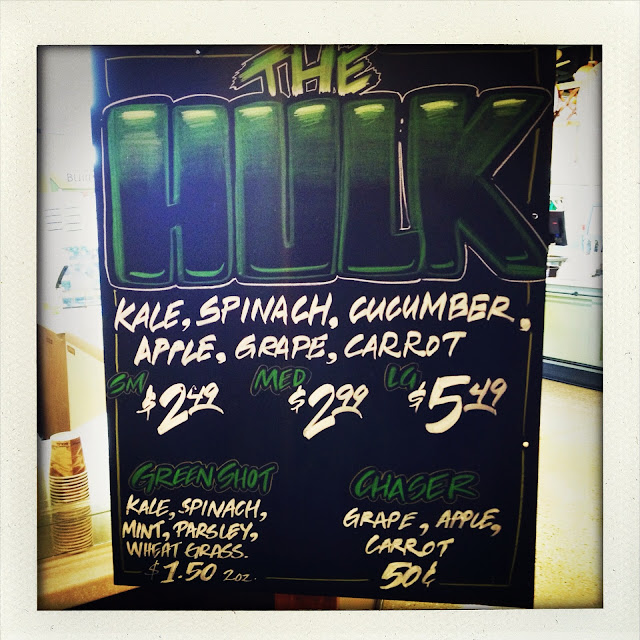 THE
HULK
KALE, SPINACH, CUCUMBER,
APPLE, GRAPE, CARROT
SM $2.49 MED $2.99 LG $5.49
GREEN SHOT
KALE, SPINACH,
MINT, PARSLEY,
WHEAT GRASS.
$1.50 2oz.
CHASER
GRAPE, APPLE,
CARROT
50¢